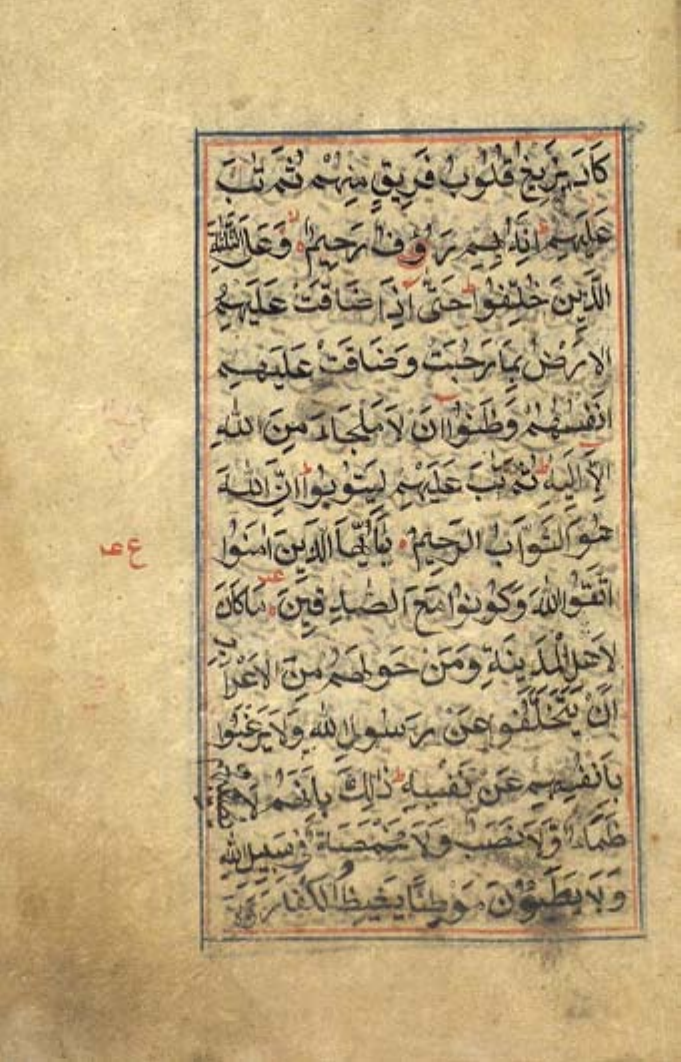 كَادَ يَزِيغُ قُلُوبُ فَرِيقٍ مِنْهُمْ ثُمَّ تَابَ
عَلَيْهِمْ اِنَّهُ بِهِمْ رَءُوفٌ رَحِيمٌ وَعَلَى الثَّلٰثَةِ
الَّذِينَ خُلِّفُوا حَتّٰى اِذَا ضَاقَتْ عَلَيْهِمُ
الْاَرْضُ بِمَا رَحُبَتْ وَضَاقَتْ عَلَيْهِمْ
اَنْفُسُهُمْ وَظَنُّوا اَنْ لَا مَلْجَاَءَ مِنَ اللّٰهِ
اِلَّا اِلَيْهِ ثُمَّ تَابَ عَلَيْهِمْ لِيَتُوبُوا اِنَّ اللّٰهَ
هُوَ التَّوَّابُ الرَّحِيمُ يَا اَيُّهَا الَّذِينَ اٰمَنُوا
اتَّقُوا اللّٰهَ وَكُونُوا مَعَ الصّٰدِقِينَ مَا كَانَ
لِاَهْلِ الْمَدِينَةِ وَمَنْ حَوْلَهُمْ مِنَ الْاَعْرَابِ
اَنْ يَتَخَلَّفُوا عَنْ رَسُولِ اللّٰهِ وَلَا يَرْغَبُوا
بِاَنْفُسِهِمْ عَنْ نَفْسِهِ ذٰلِكَ بِاَنَّهُمْ لَا يُصِيبُهُمْ
ظَمَاءٌ وَلَا نَصَبٌ وَلَا مَخْمَصَةٌ فِي سَبِيلِ اللّٰهِ
وَلَا يَطَئُونَ مَوْطِئًا يَغِيظُ الْكُفَّارَ وَلَا